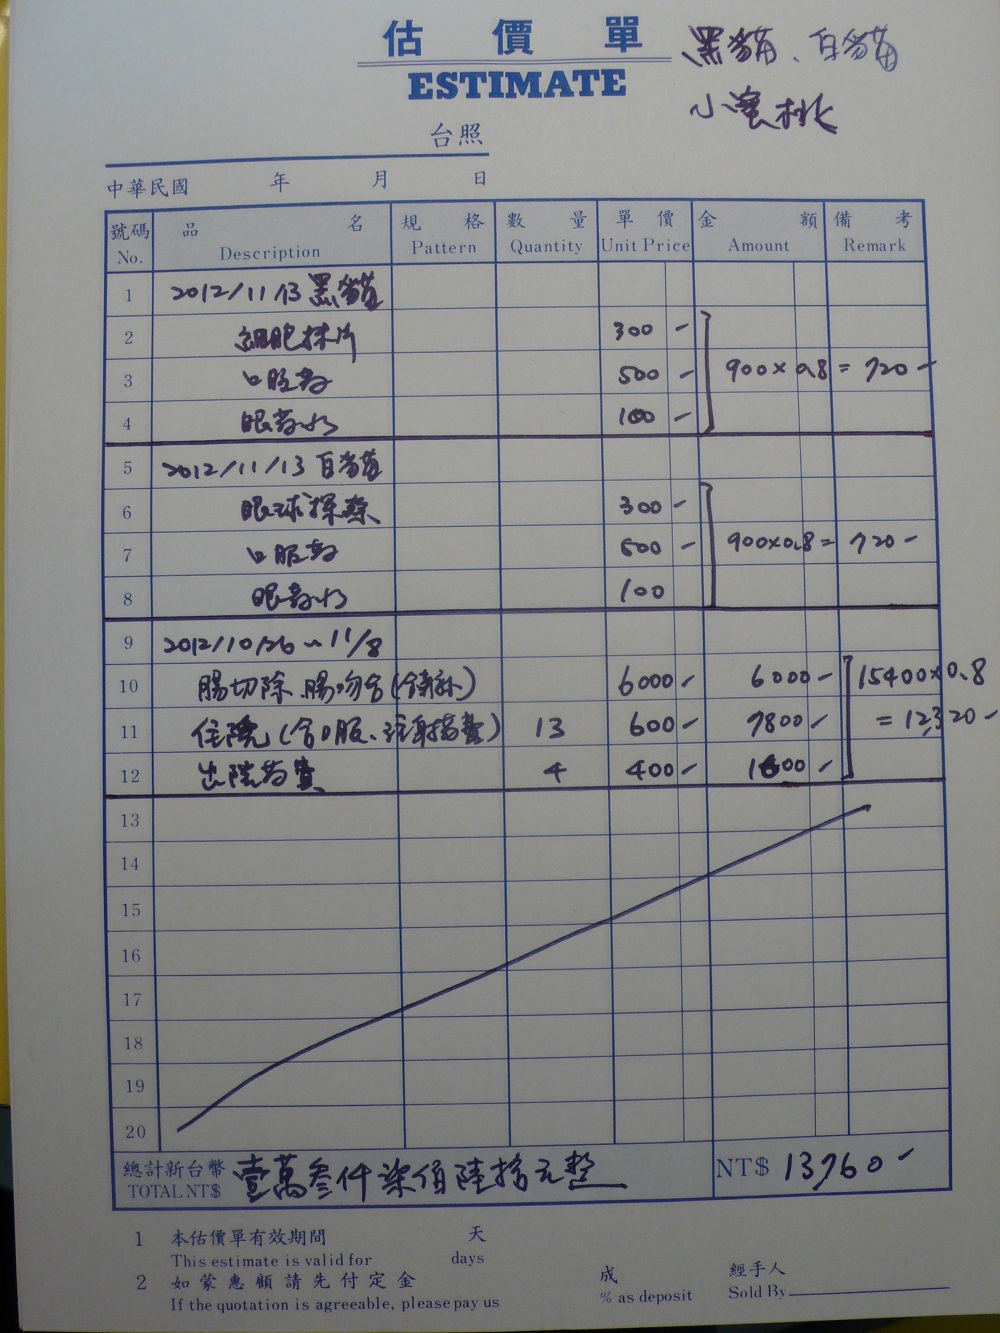 估價單 黑貓、白貓
ESTIMATE
小蜜桃
台照
中華民國 年 月 日
號碼 品名 規格 數量 單價 金額 備考
No. Description Pattern Quantity Unit Price Amount Remark
1 2012/11/13 黑貓
2 細胞抹片 300-
3 口服藥 500- 900×0.8=720-
4 眼藥水 100-
5 2012/11/13 白貓
6 眼球探察 300-
7 口服藥 500- 900×0.8=720-
8 眼藥水 100
9 2012/10/26~11/8
10 腸切除.腸吻合(含麻醉) 6000- 6000- 15400×0.8
11 住院(含口服、注射藥費) 13 600- 7800- =12320-
12 出院藥費 4 400- 1600-
13
14
15
16
17
18
19
20
總計新台幣 壹萬叁仟柒佰陸拾元整 NT$ 13760-
TOTAL NT$
1 本估價單有效期間 天
This estimate is valid for days
2 如蒙惠顧請先付定金 成 經手人
If the quotation is agreeable, please pay us % as deposit Sold By